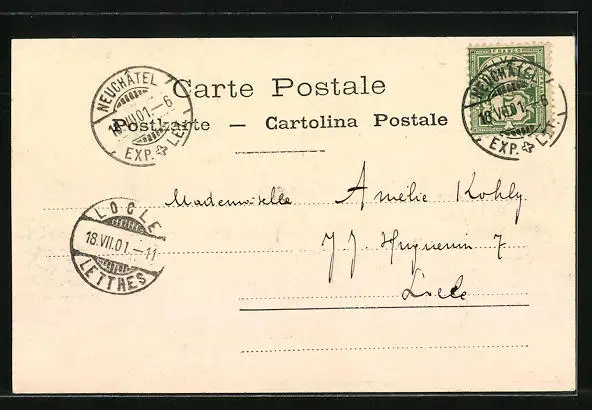 NEUCHÂTEL
18.VII.01.-6
EXP. LET.
Carte Postale
Postkarte — Cartolina Postale
FRANCO
NEUCHÂTEL
18.VII.01.-6
EXP. LET.
Mademoiselle Amélie Kohly
J. J. Huguenin 7
Locle
LOCLE
18.VII.01.-11
LETTRES